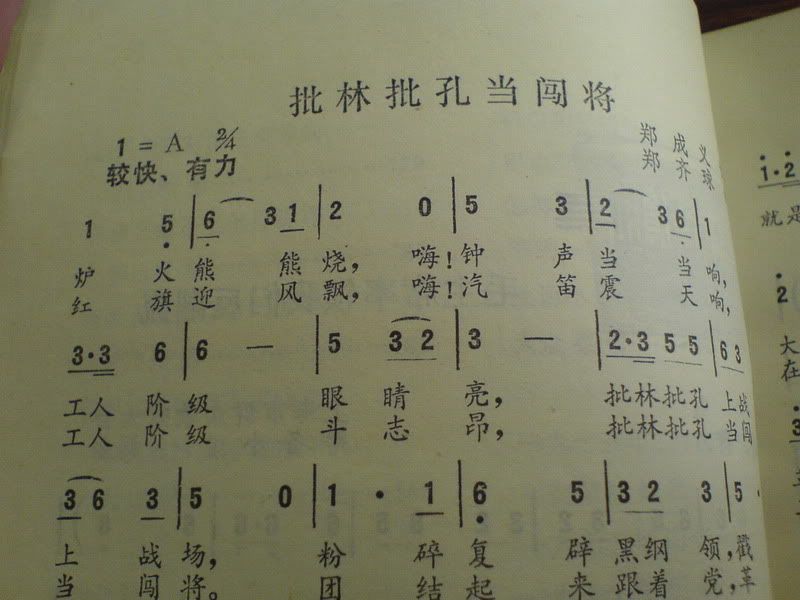 批林批孔当闯将
1 = A 2/4
郑成义
较快、有力
郑齐球
1 5 | 6 3 1 | 2 0 | 5 3 | 2 3 6 | 1
炉 火 熊 熊 烧， 嗨！ 钟 声 当 当 响，
红 旗 迎 风 飘， 嗨！ 汽 笛 震 天 响，
3·3 6 | 6 — | 5 3 2 | 3 — | 2·3 5 5 | 6 3
工人 阶 级 眼 睛 亮， 批林批孔 上战
工人 阶 级 斗 志 昂， 批林批孔 当闯
3 6 3 | 5 0 | 1 · 1 | 6 5 | 3 2 3 | 5 ·
上 战 场， 粉 碎 复 辟 黑纲 领，戳
当 闯 将。 团 结 起 来 跟着 党，革
1·2
就是
2
大
在